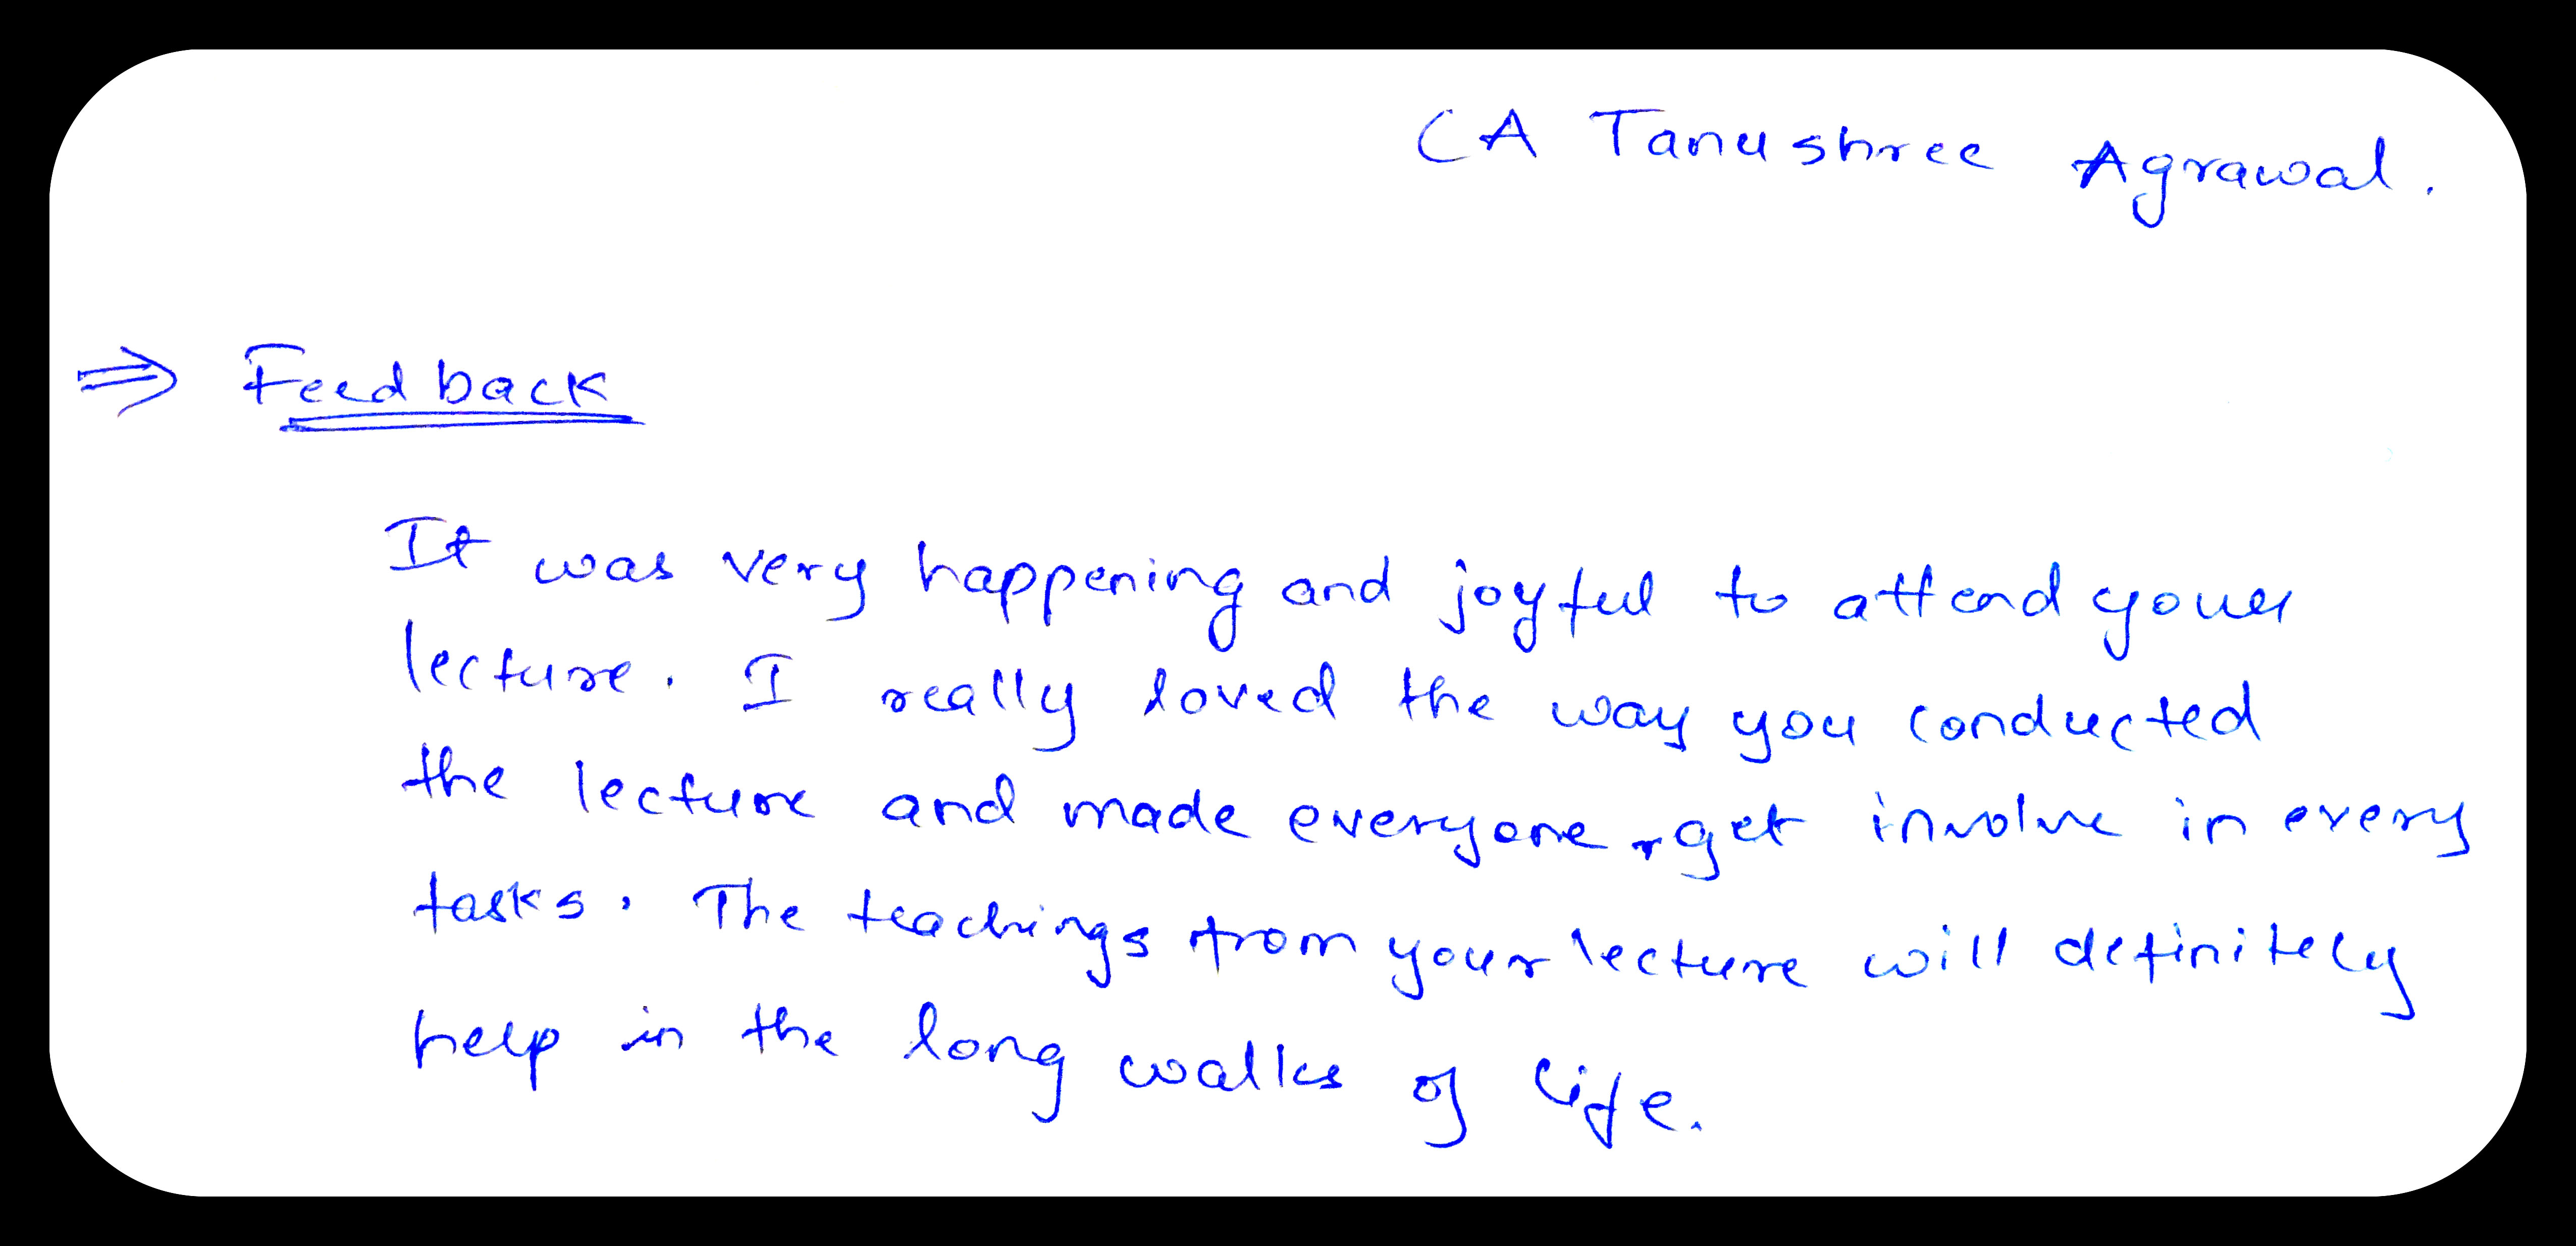 CA Tanushree Agrawal.
⇒ Feedback
It was very happening and joyful to attend your
lecture. I really loved the way you conducted
the lecture and made everyone get involve in every
tasks. The teachings from your lecture will definitely
help in the long walks of life.